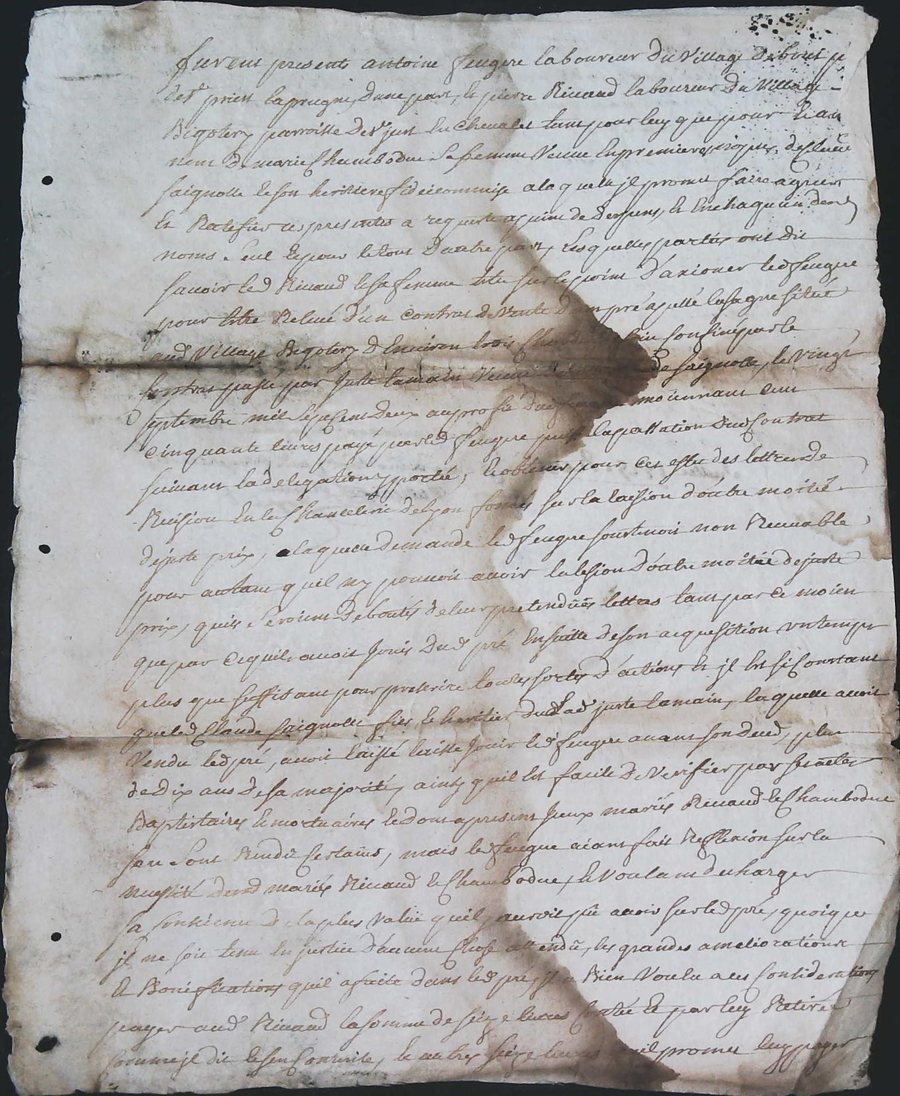 furent presents antoine feugere laboureur du village
de st priest laprugne dune part, & pierre Rinaud laboureur du village
Bigotery parroisse de st just en chevalet tant pour luy que pour & au
nom de marie Chambodue sa femme veuve en premieres nopces de Claude
saignolle & son heritiere fideicommise a laquelle jl promet faire agreer
Et Ratefier ces presentes a requeste a peine de depens, & en chaquun desd
noms seul & pour le tout d'autre part, Lesquelles parties ont dit
savoir led Rinaud & sa femme etre sur le point d'actioner led feugere
pour etre Relevé d'un contrat de vente d'un pré appellé lasagne situé
aud village Bigotery d'environ trois confiné par le
contrat passé par juste lamain veuve de saignolle, le vingt
septembre mil sept cent deux au profit dud moiennant cent
cinquante livres payé par led feugere la passation dud Contrat
suivant la delegation y portée, & obtenir pour cet effet des lettres de
Récision en la Chancelerie de Lyon fondés sur la lesion d'outre moitié
de juste prix, a laquelle demande led feugere soutenoit non Recevable
pour autant qu'il n'y pouvoit avoir la lesion d'outre moitié de juste
prix, quils seroient deboutés de leur pretendües lettres tant par ce moien
que par ce quil avoit Joüis dud pré Ensuitte de son acquesition un temps
plus que suffisant pour prescrire toutes sortes d'actions & jl est si Constant
que led Claude saignolle fils & heritier de lad juste lamain, laquelle avoit
vendu led pré, avoit laissé laissé Jouir led feugere avant son deced, plus
de Dix ans de sa majorité, ainsy quil est facile de verifier par ses actes
Baptistaires & mortuaires & dont a present Jceux mariés Rinaud & Chambodue
sen sont Rendu Certains, mais led feugere aiant fait Reflexion sur la
necessité desd mariés Rinaud & Chambodue, & voulant decharger
sa Conscience de la plus value quil auroit pû avoir sur led pré, quoique
jl ne soit tenu en justice d'aucune Chose attendu les grandes ameliorations
& Bonifications quil a faite dans led pré jl a Bien voulu a ces Considerations
payer aud Rinaud la somme de seize livres Contée & par luy Retirée
comme jl dit & sen Contente, & autres seize livres quil promet luy payer